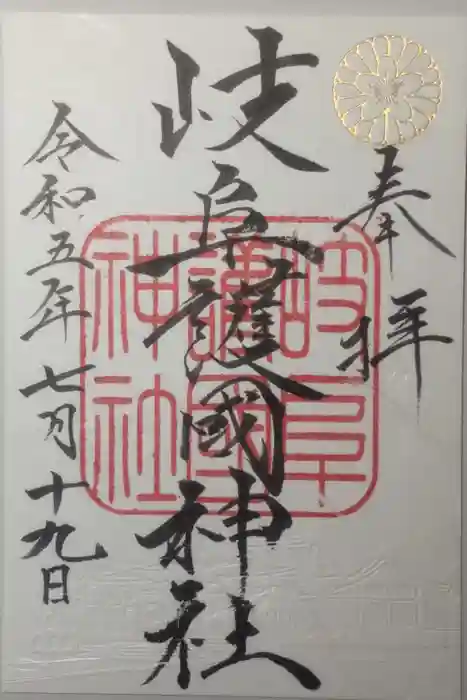 奉拝
岐阜護國神社
令和五年七月十九日
岐阜
護國
神社